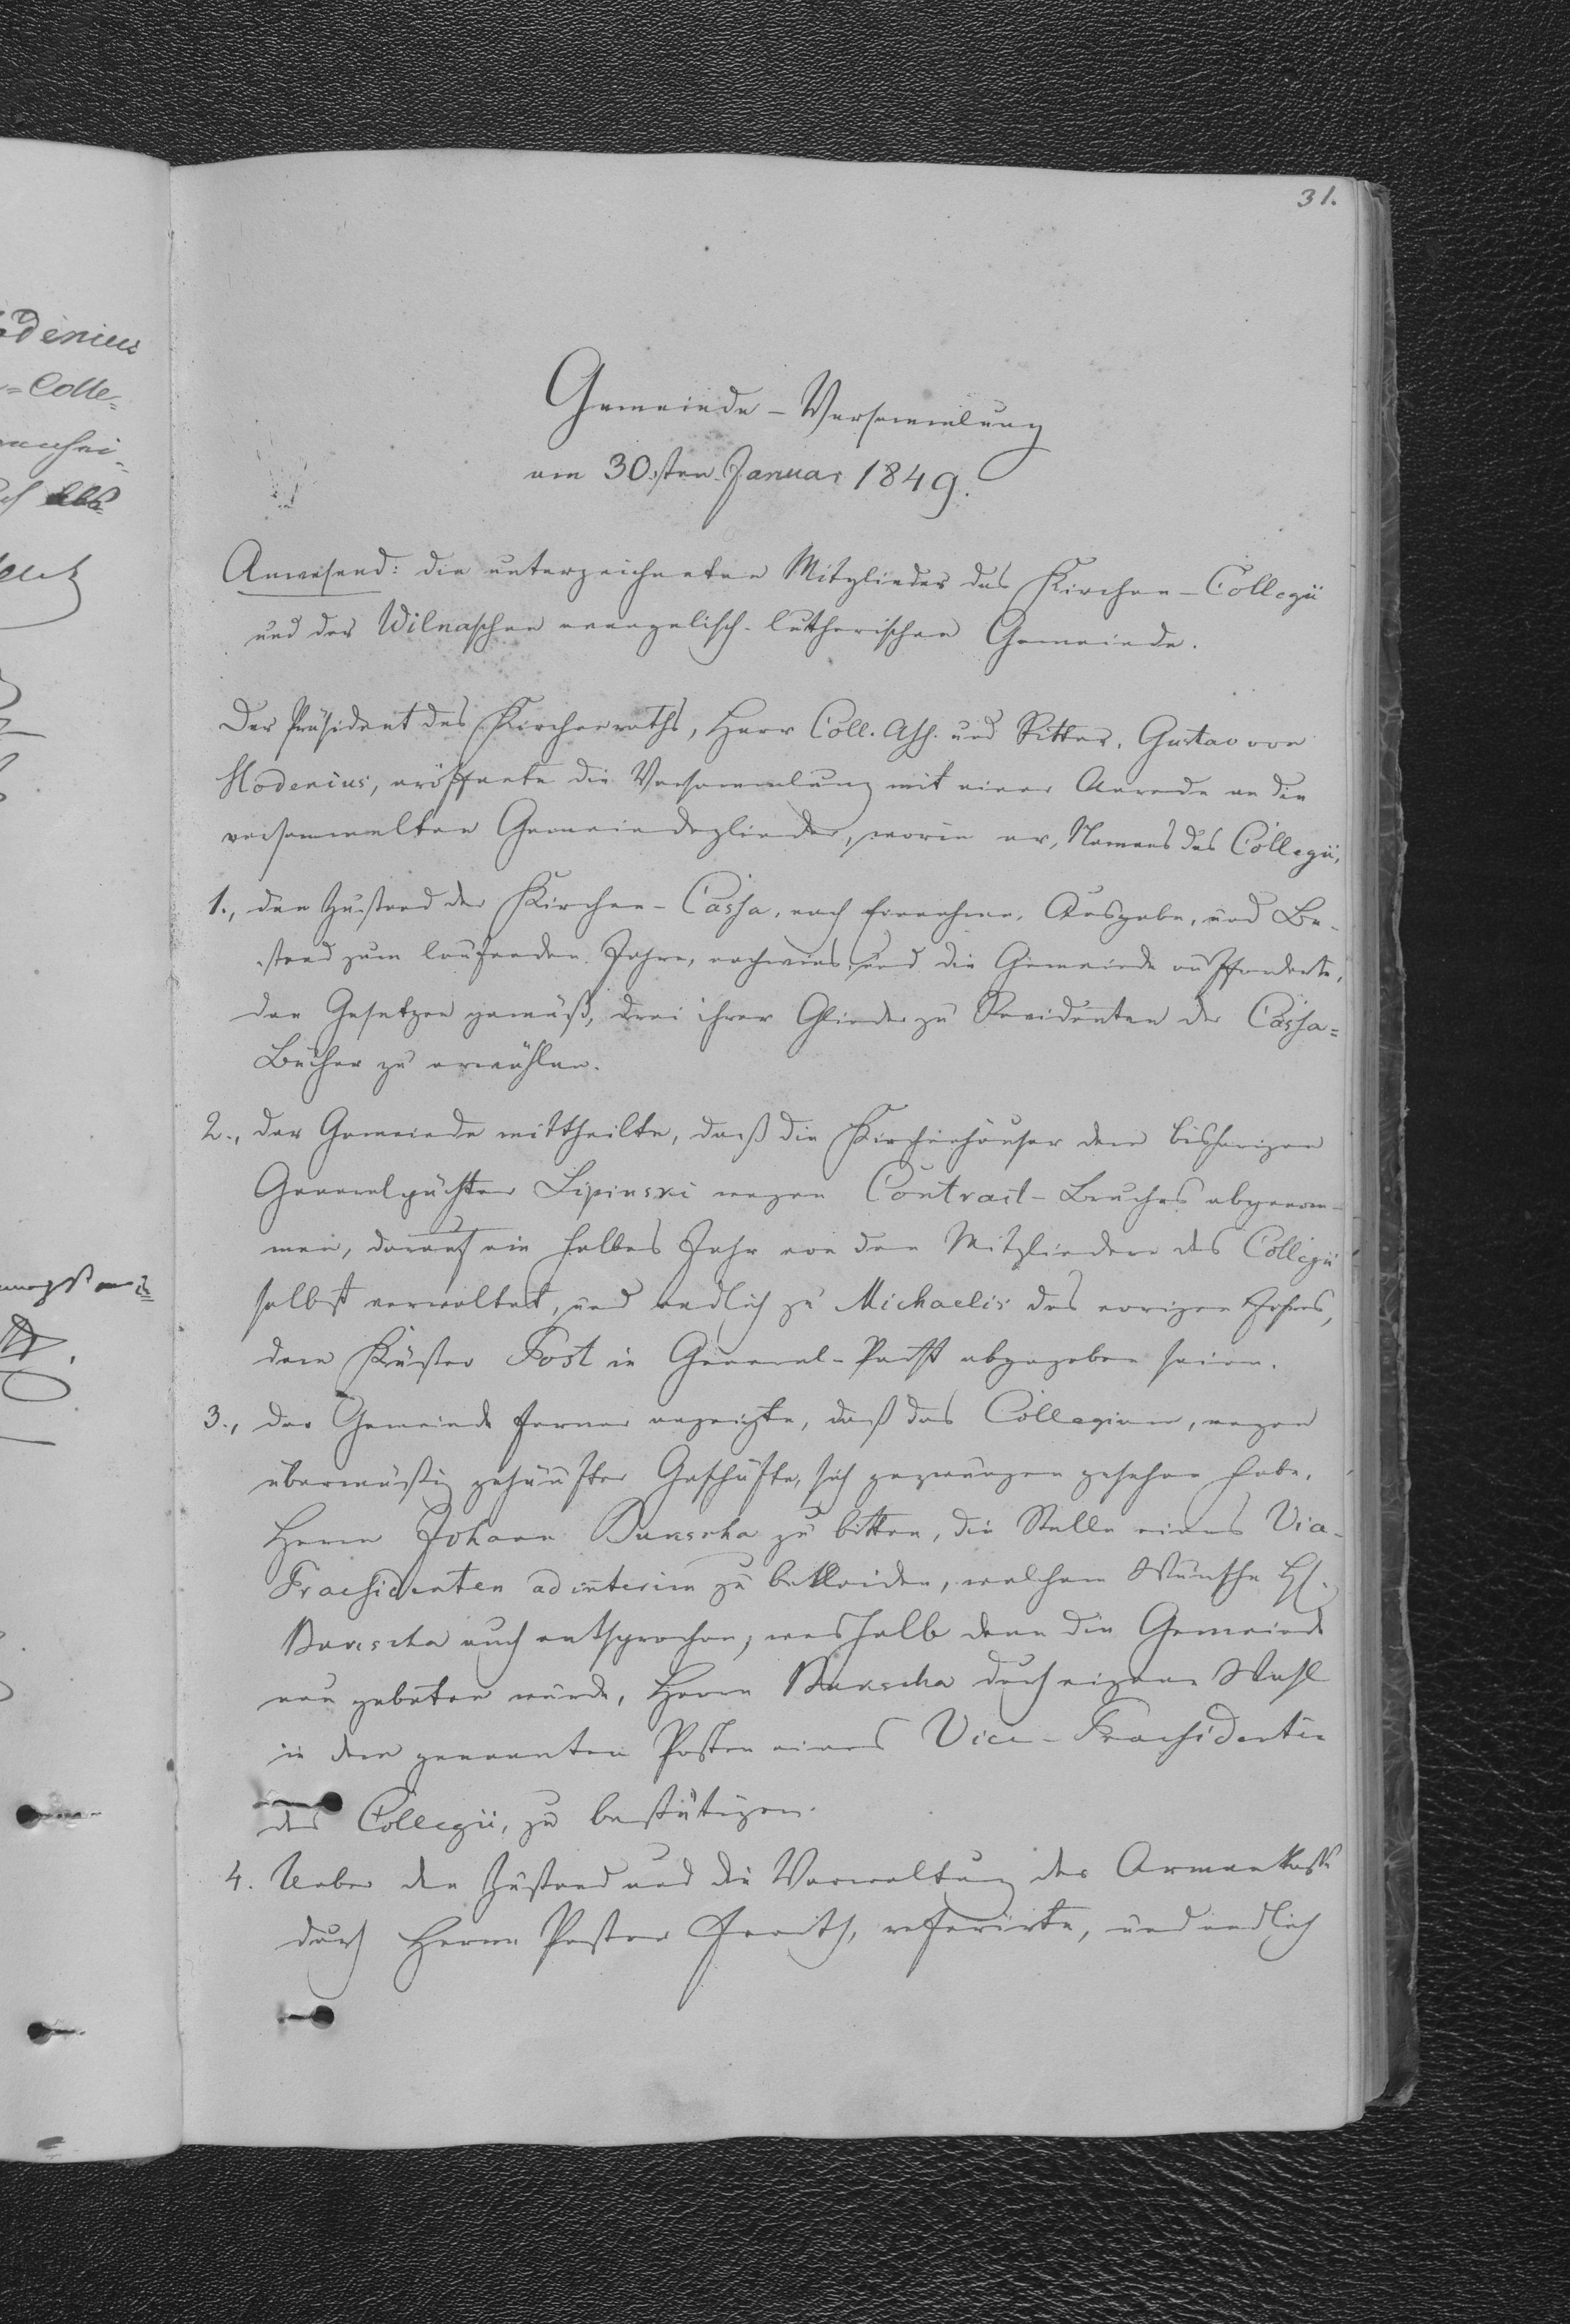 31.
Gemeinde-Versammlung
am 30.sten Januar 1849.
Anwesend: die unterzeichneten Mitglieder des Kirchen-Collegii
und der Wilnaschen evangelisch-lutherischen Gemeinde.
Der Präsident des Kirchenraths, Herr Coll. Ass. und Ritter, Gustav von
Hodenius, eröffnete die Versammlung mit einer Anrede an die
versammelten Gemeindeglieder, worin er, Namens des Collegii,
1., den Zustand der Kirchen-Cassa, nach Einnahme, Ausgabe, und Be-
stand zum laufenden Jahre, nachwies, und die Gemeinde aufforderte,
den Gesetzen gemäß, drei ihrer Glieder zu Revidenten der Cassa=
Bücher zu erwählen.
2., der Gemeinde mittheilte, daß die Kirchenhäuser dem bisherigen
Generalpächter Lipinski wegen Contract-Bruches abgenom-
men, darauf ein halbes Jahr von den Mitgliedern des Collegii
selbst verwaltet, und endlich zu Michaelis des vorigen Jahres,
dem Küster Fost in General-Pacht abgegeben seien.
3., der Gemeinde ferner anzeigte, daß das Collegium, wegen
übermäßig gehäufter Geschäfte, sich gezwungen gesehen habe,
Herrn Johann zu bitten, die Stelle eines Vice-
Praesidenten ad interim zu bekleiden, welchem Wunsche H.
auch entsprochen, weshalb denn die Gemeinde
nun gebeten wurde, Herrn durch eigene Wahl
in dem genannten Posten eines Vice-Praesidenten
des Collegii, zu bestätigen.
4. Ueber den Zustand und die Verwaltung der Armenkasse
durch Herrn Pastor referirte, und endlich